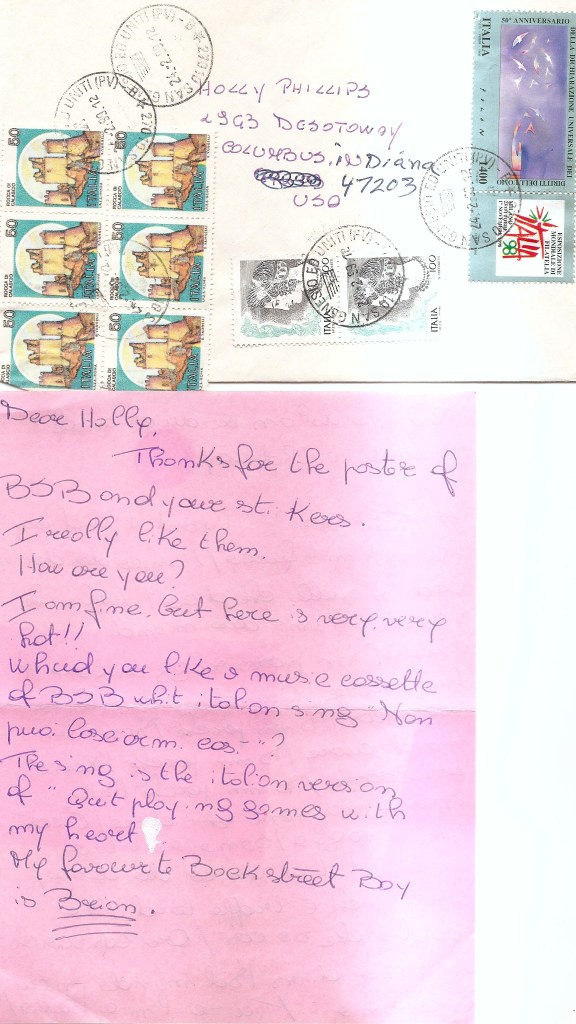 HOLLY PHILLIPS
2993 DESOTOWAY
COLUMBUS, iNDiáNa
47203
USA
50° ANNIVERSARIO
DELLA DICHIARAZIONE UNIVERSALE DEI
DIRITTI DELL'UOMO
ITALIA
400
MILANO
ITALIA 98
ESPOSIZIONE
MONDIALE DI
FILATELIA
27010 SAN G ESIO ED UNITI (PV) - B
24.2.99.12
50 ROCCA DI CALASCIO ITALIA
50 ROCCA DI CALASCIO ITALIA
50 ROCCA DI CALASCIO ITALIA
50 ROCCA DI CALASCIO ITALIA
50 ROCCA DI CALASCIO ITALIA
50 ROCCA DI CALASCIO ITALIA
100 ITALIA
100 ITALIA
Dear Holly,
Thanks for the poster of
BSB and your stikers.
I really like them.
How are you?
I am fine, but here is very, very
hot!!
Whud you like a music cassette
of BSB whit italian sing "Non
puoi lasciarmi così"?
The sing is the italian version
of "Quit playing games with
my heart
My favourite Backstreet Boy
is Brian.